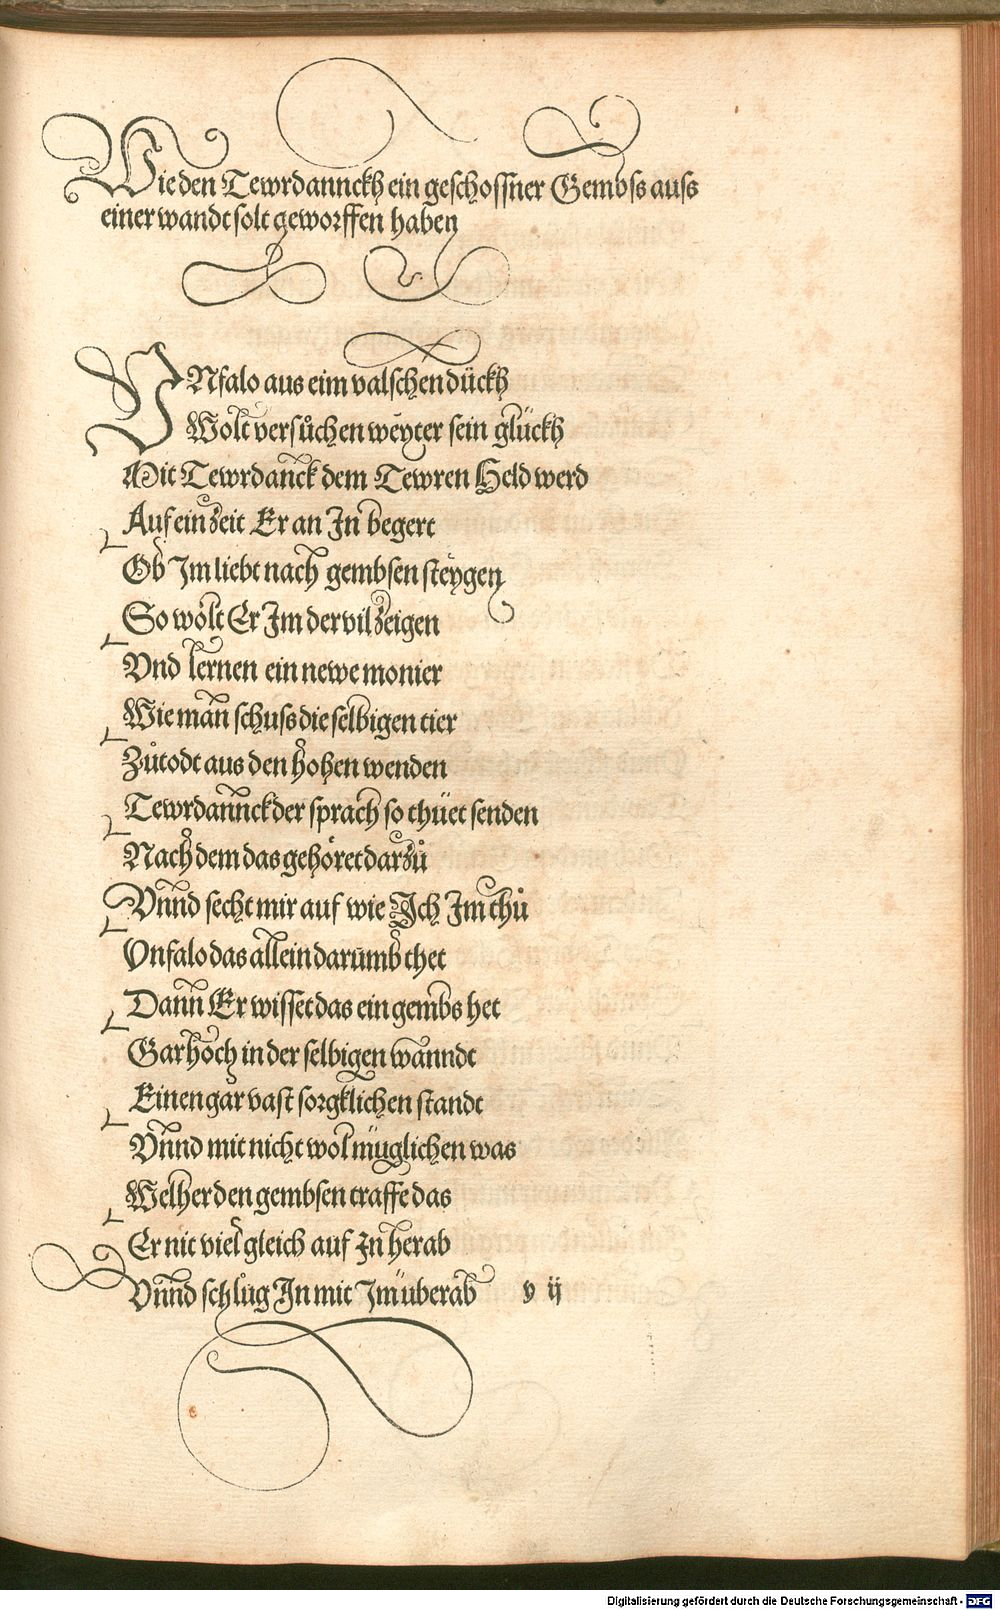 Wie den Tewrdannckh ein geschossner Gembss auss
einer wandt solt geworffen haben
VNfalo aus eim valschen dückh
Wolt versůchen weyter sein glückh
Mit Tewrdanck dem Tewren Held werd
Auf ein zeit Er an In begert
Ob Im liebt nach gembsen steygen
So wolt Er Im der vil zeigen
Vnd lernen ein newe monier
Wie man schuss die selbigen tier
Zůtodt aus den hohen wenden
Tewrdannck der sprach so thüet senden
Nach dem das gehöret darzů
Vnnd secht mir auf wie Ich Im thů
Vnfalo das allein darumb thet
Dann Er wisset das ein gembs het
Gar hoch in der selbigen wanndt
Einen gar vast sorgklichen standt
Vnnd mit nicht wol müglichen was
Welher den gembsen traffe das
Er nit viel gleich auf In herab
Vnnd schlug In mit Im überab v ij
Digitalisierung gefördert durch die Deutsche Forschungsgemeinschaft - DFG